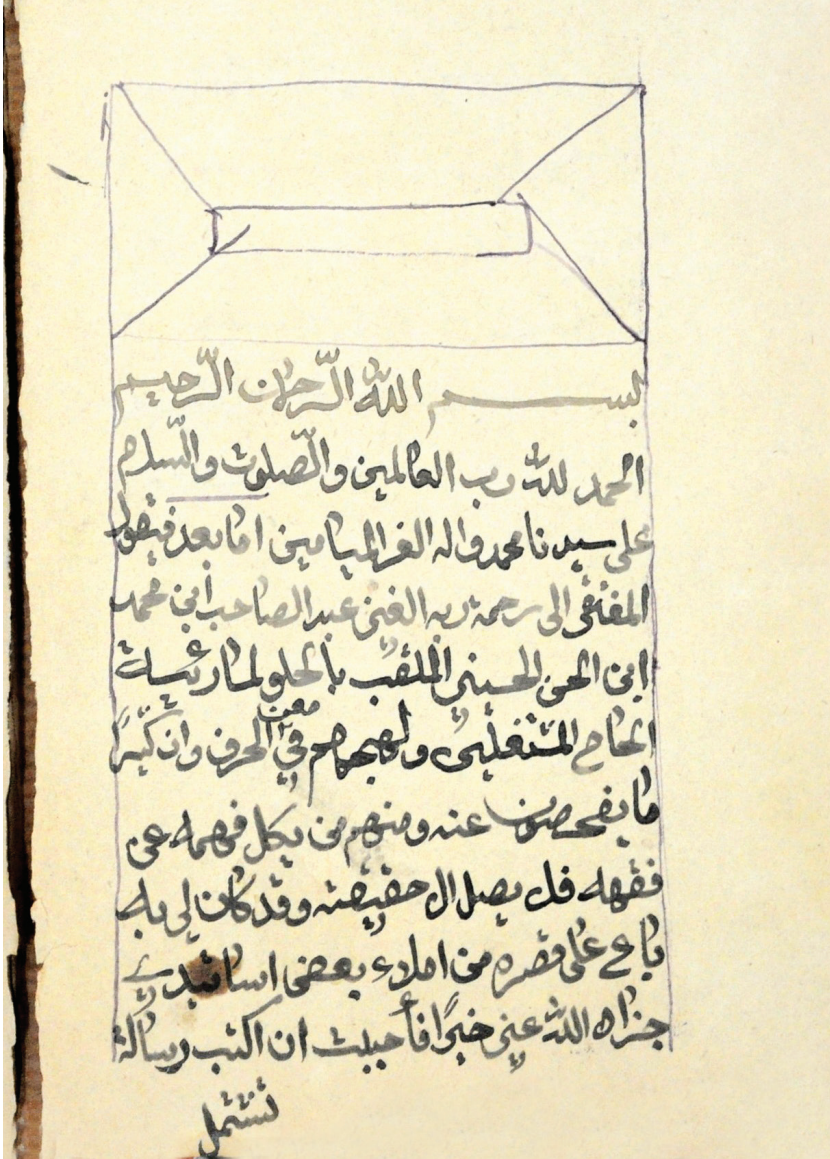 بســـــم الله الرّحمان الرّحيم
الحمد لله رب العالمين والصّلوت والسّلام
على سيدنا محمد واله الغر الميامين اما بعد فيقول
المفتقر الى رحمة ربه الغني عبد الصاحب ابن محمد
ابن الحسن الحسيني الملقب بالحلو لما رئيت
الحاح المشتغلين ولهجهم في معنى الحرف وان كثيرًا
ما يفحصون عنه ومنهم من يكل فهمه عن
فقهه فلا يصل الى حقيقته وقد كان لي به
باع على قصره من املاء بعض اساتيدي
جزاه الله عني خيرًا فأحببت ان اكتب رسالة
تشتمل